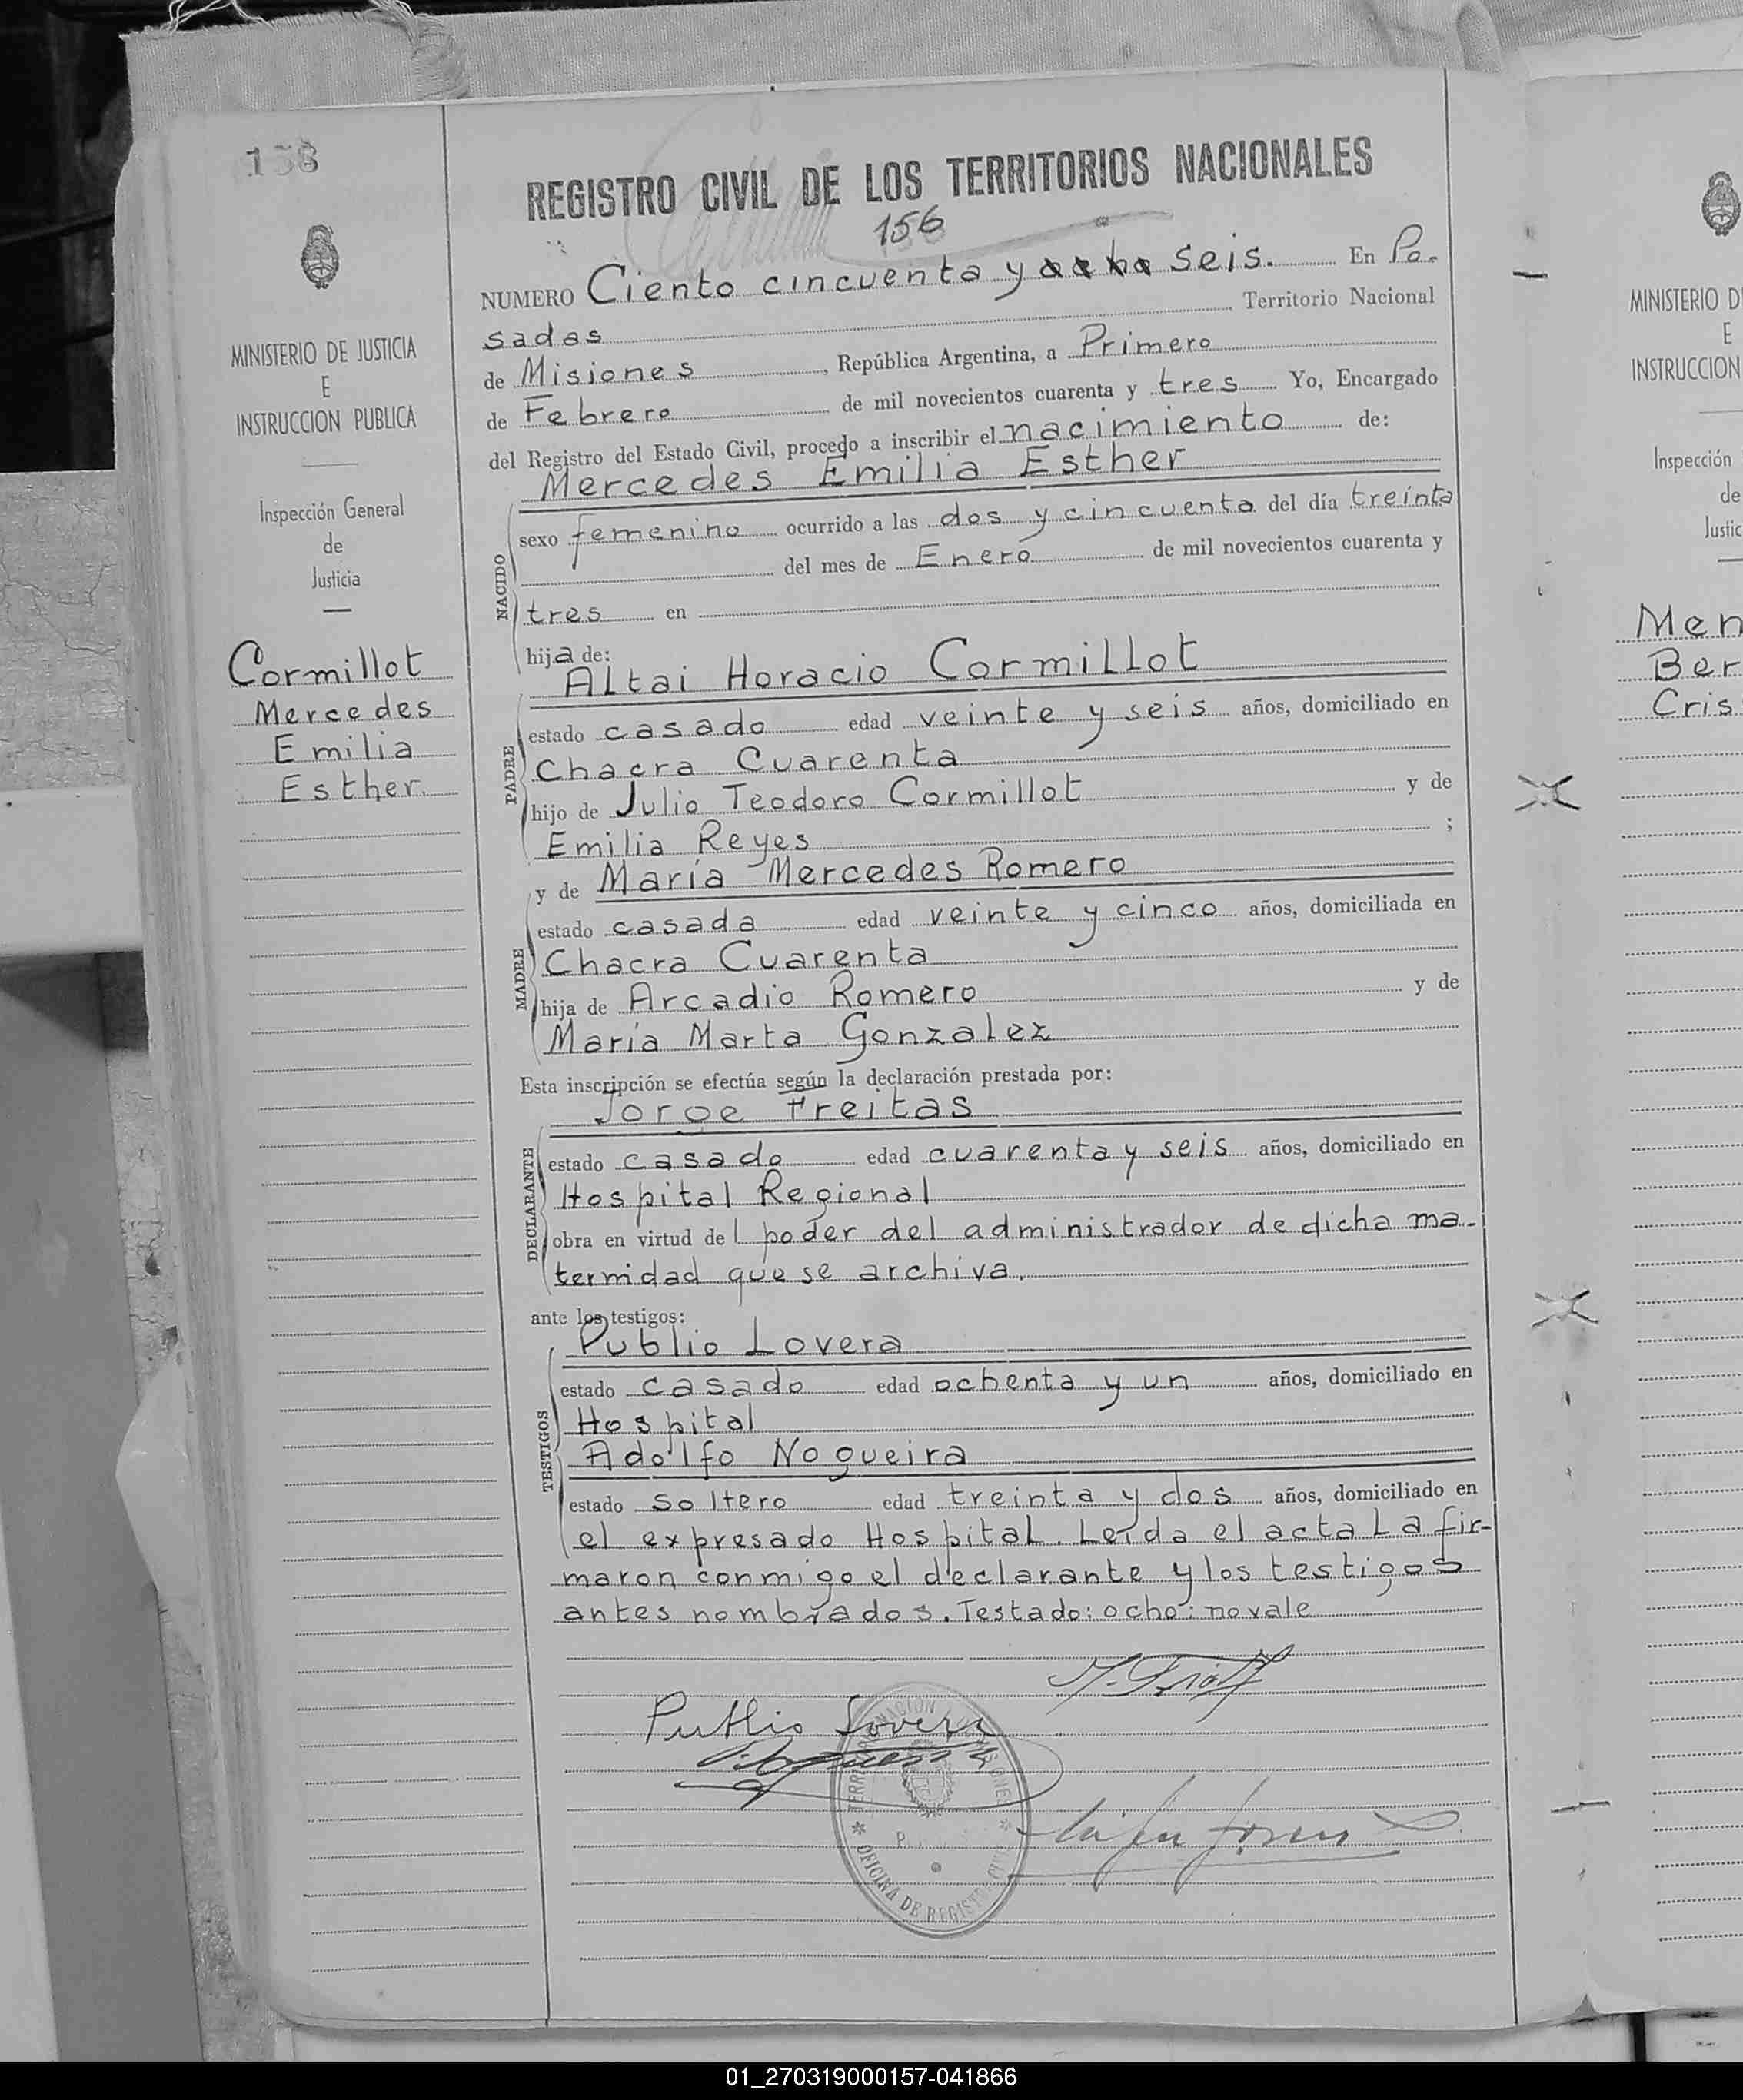 158
REGISTRO CIVIL DE LOS TERRITORIOS NACIONALES
156
NUMERO Ciento cincuenta y ocho seis. En Po-
sadas Territorio Nacional
de Misiones, República Argentina, a Primero
de Febrero de mil novecientos cuarenta y tres Yo, Encargado
del Registro del Estado Civil, procedo a inscribir el nacimiento de:
Mercedes Emilia Esther
NACIDO
sexo femenino ocurrido a las dos y cincuenta del día treinta
del mes de Enero de mil novecientos cuarenta y
tres en
hija de:
Altai Horacio Cormillot
PADRE
estado casado edad veinte y seis años, domiciliado en
Chacra Cuarenta
hijo de Julio Teodoro Cormillot y de
Emilia Reyes ;
y de María Mercedes Romero
MADRE
estado casada edad veinte y cinco años, domiciliada en
Chacra Cuarenta
hija de Arcadio Romero y de
María Marta Gonzalez
Esta inscripción se efectúa según la declaración prestada por:
Jorge Freitas
DECLARANTE
estado casado edad cuarenta y seis años, domiciliado en
Hospital Regional
obra en virtud del poder del administrador de dicha ma-
ternidad que se archiva.
ante los testigos:
Publio Lovera
TESTIGOS
estado casado edad ochenta y un años, domiciliado en
Hospital
Adolfo Nogueira
estado soltero edad treinta y dos años, domiciliado en
el expresado Hospital. Leída el acta La fir-
maron conmigo el declarante y los testigos
antes nombrados. Testado: ocho: no vale
Publio Lovera
OFICINA DE REGISTRO CIVIL
MINISTERIO DE JUSTICIA
E
INSTRUCCION PUBLICA
Inspección General
de
Justicia
Cormillot
Mercedes
Emilia
Esther.
MINISTERIO D
E
INSTRUCCION
Inspección
de
Justic
Men
Ber
Cris
01_270319000157-041866